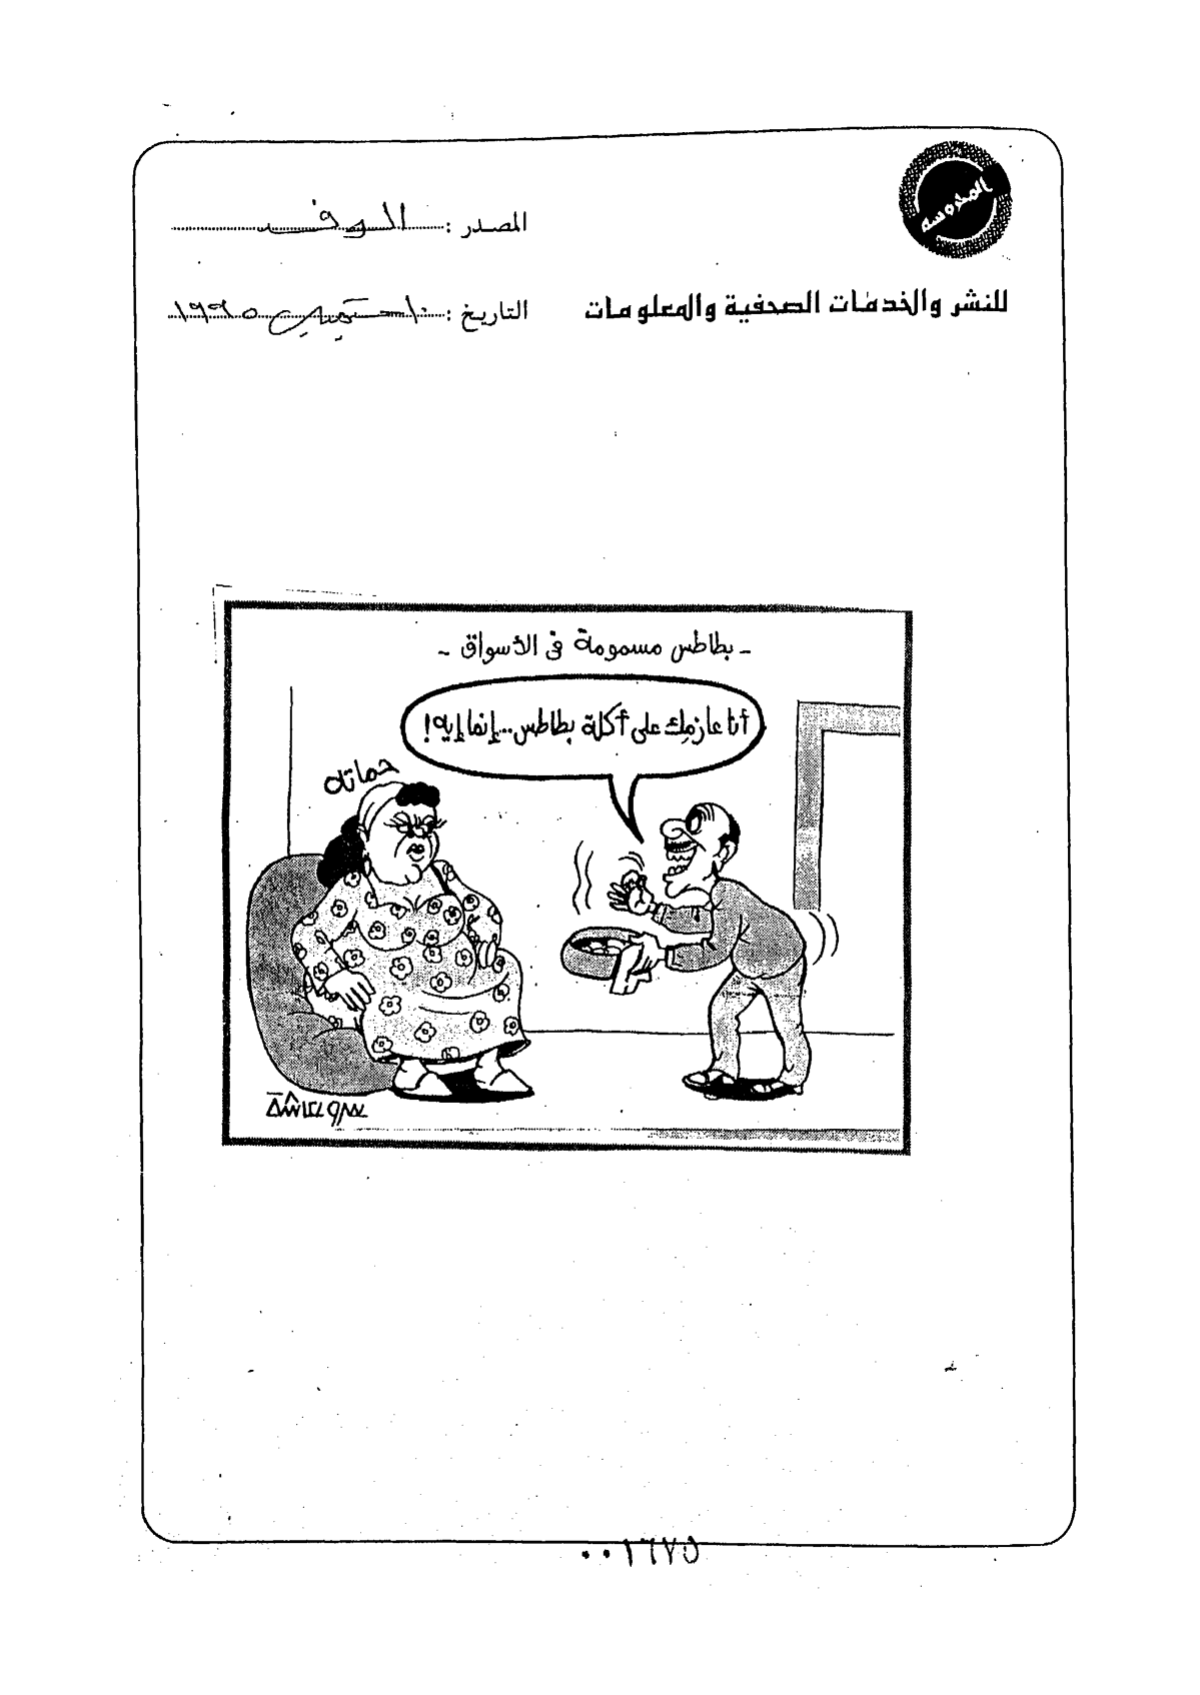 المحروسة
المصدر : الوفد
للنشر والخدمات الصحفية والمعلومات
التاريخ : ١٩٩٥
- بطاطس مسمومة فى الأسواق -
أنا عازمك على أكلة بطاطس... إنما إيه!
حماته
٠٠١٦٧٥